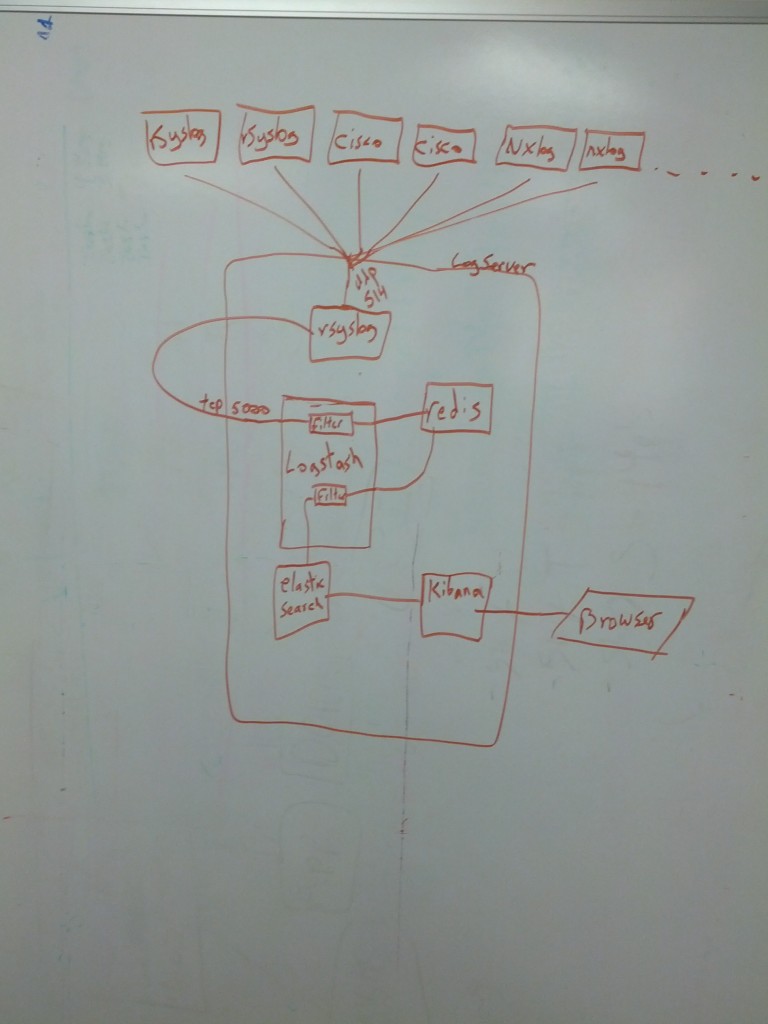 rsyslog
rsyslog
cisco
cisco
Nxlog
nxlog
. . . . .
Log Server
udp
514
rsyslog
tcp 5000
filter
redis
Logstash
filter
elastic
search
Kibana
Browser